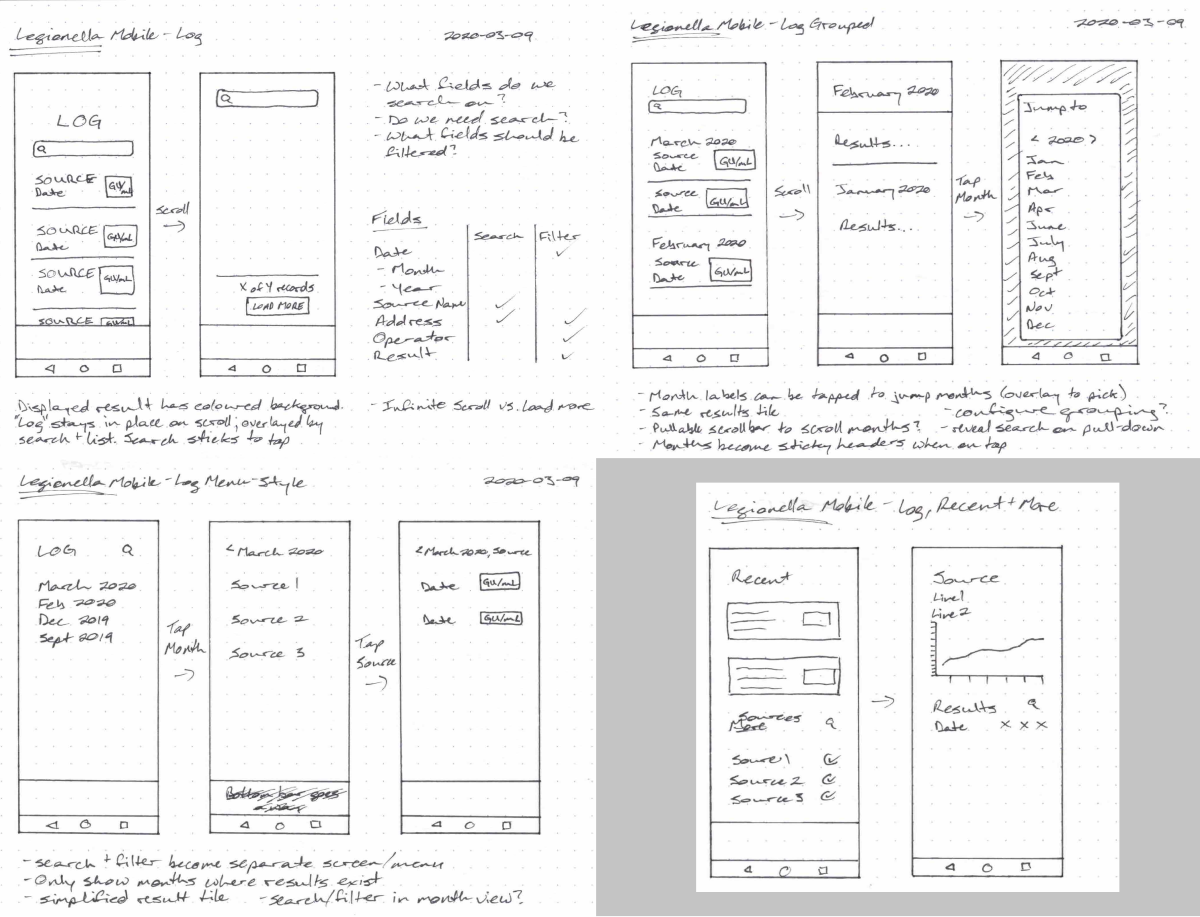 Legionella Mobile - Log
2020-03-09
LOG
SOURCE
Date
GU/mL
SOURCE
Date
GU/mL
SOURCE
Date
GU/mL
SOURCE
GU/mL
Scroll
X of Y records
LOAD MORE
- What fields do we
search on?
- Do we need search?
- What fields should be
filtered?
Fields
Search
Filter
Date
- Month
- Year
Source Name
Address
Operator
Result
Displayed result has coloured background.
"Log" stays in place on scroll; overlayed by
search + list. Search sticks to top
- Infinite Scroll vs. Load more
Legionella Mobile - Log Grouped
2020-03-09
LOG
March 2020
Source
Date
GU/mL
Source
Date
GU/mL
February 2020
Source
Date
GU/mL
Scroll
February 2020
Results...
January 2020
Results...
Tap
Month
Jump to
< 2020 >
Jan
Feb
Mar
Apr
June
July
Aug
Sept
Oct
Nov
Dec
- Month labels can be tapped to jump months (overlay to pick)
- Same results tile
- configure grouping?
- Pullable scrollbar to scroll months?
- reveal search on pull-down
- Months become sticky headers when on top
Legionella Mobile - Log Menu-Style
2020-03-09
LOG
March 2020
Feb 2020
Dec 2019
Sept 2019
Tap
Month
< March 2020
Source 1
Source 2
Source 3
Bottom bar goes
away
Tap
Source
< March 2020, Source
Date
GU/mL
Date
GU/mL
- search + filter become separate screen/menu
- Only show months where results exist
- simplified result tile
- search/filter in month view?
Legionella Mobile - Log, Recent + More
Recent
Sources
More
Source 1
Source 2
Source 3
Source
Line 1
Line 2
Results
Date
x x x